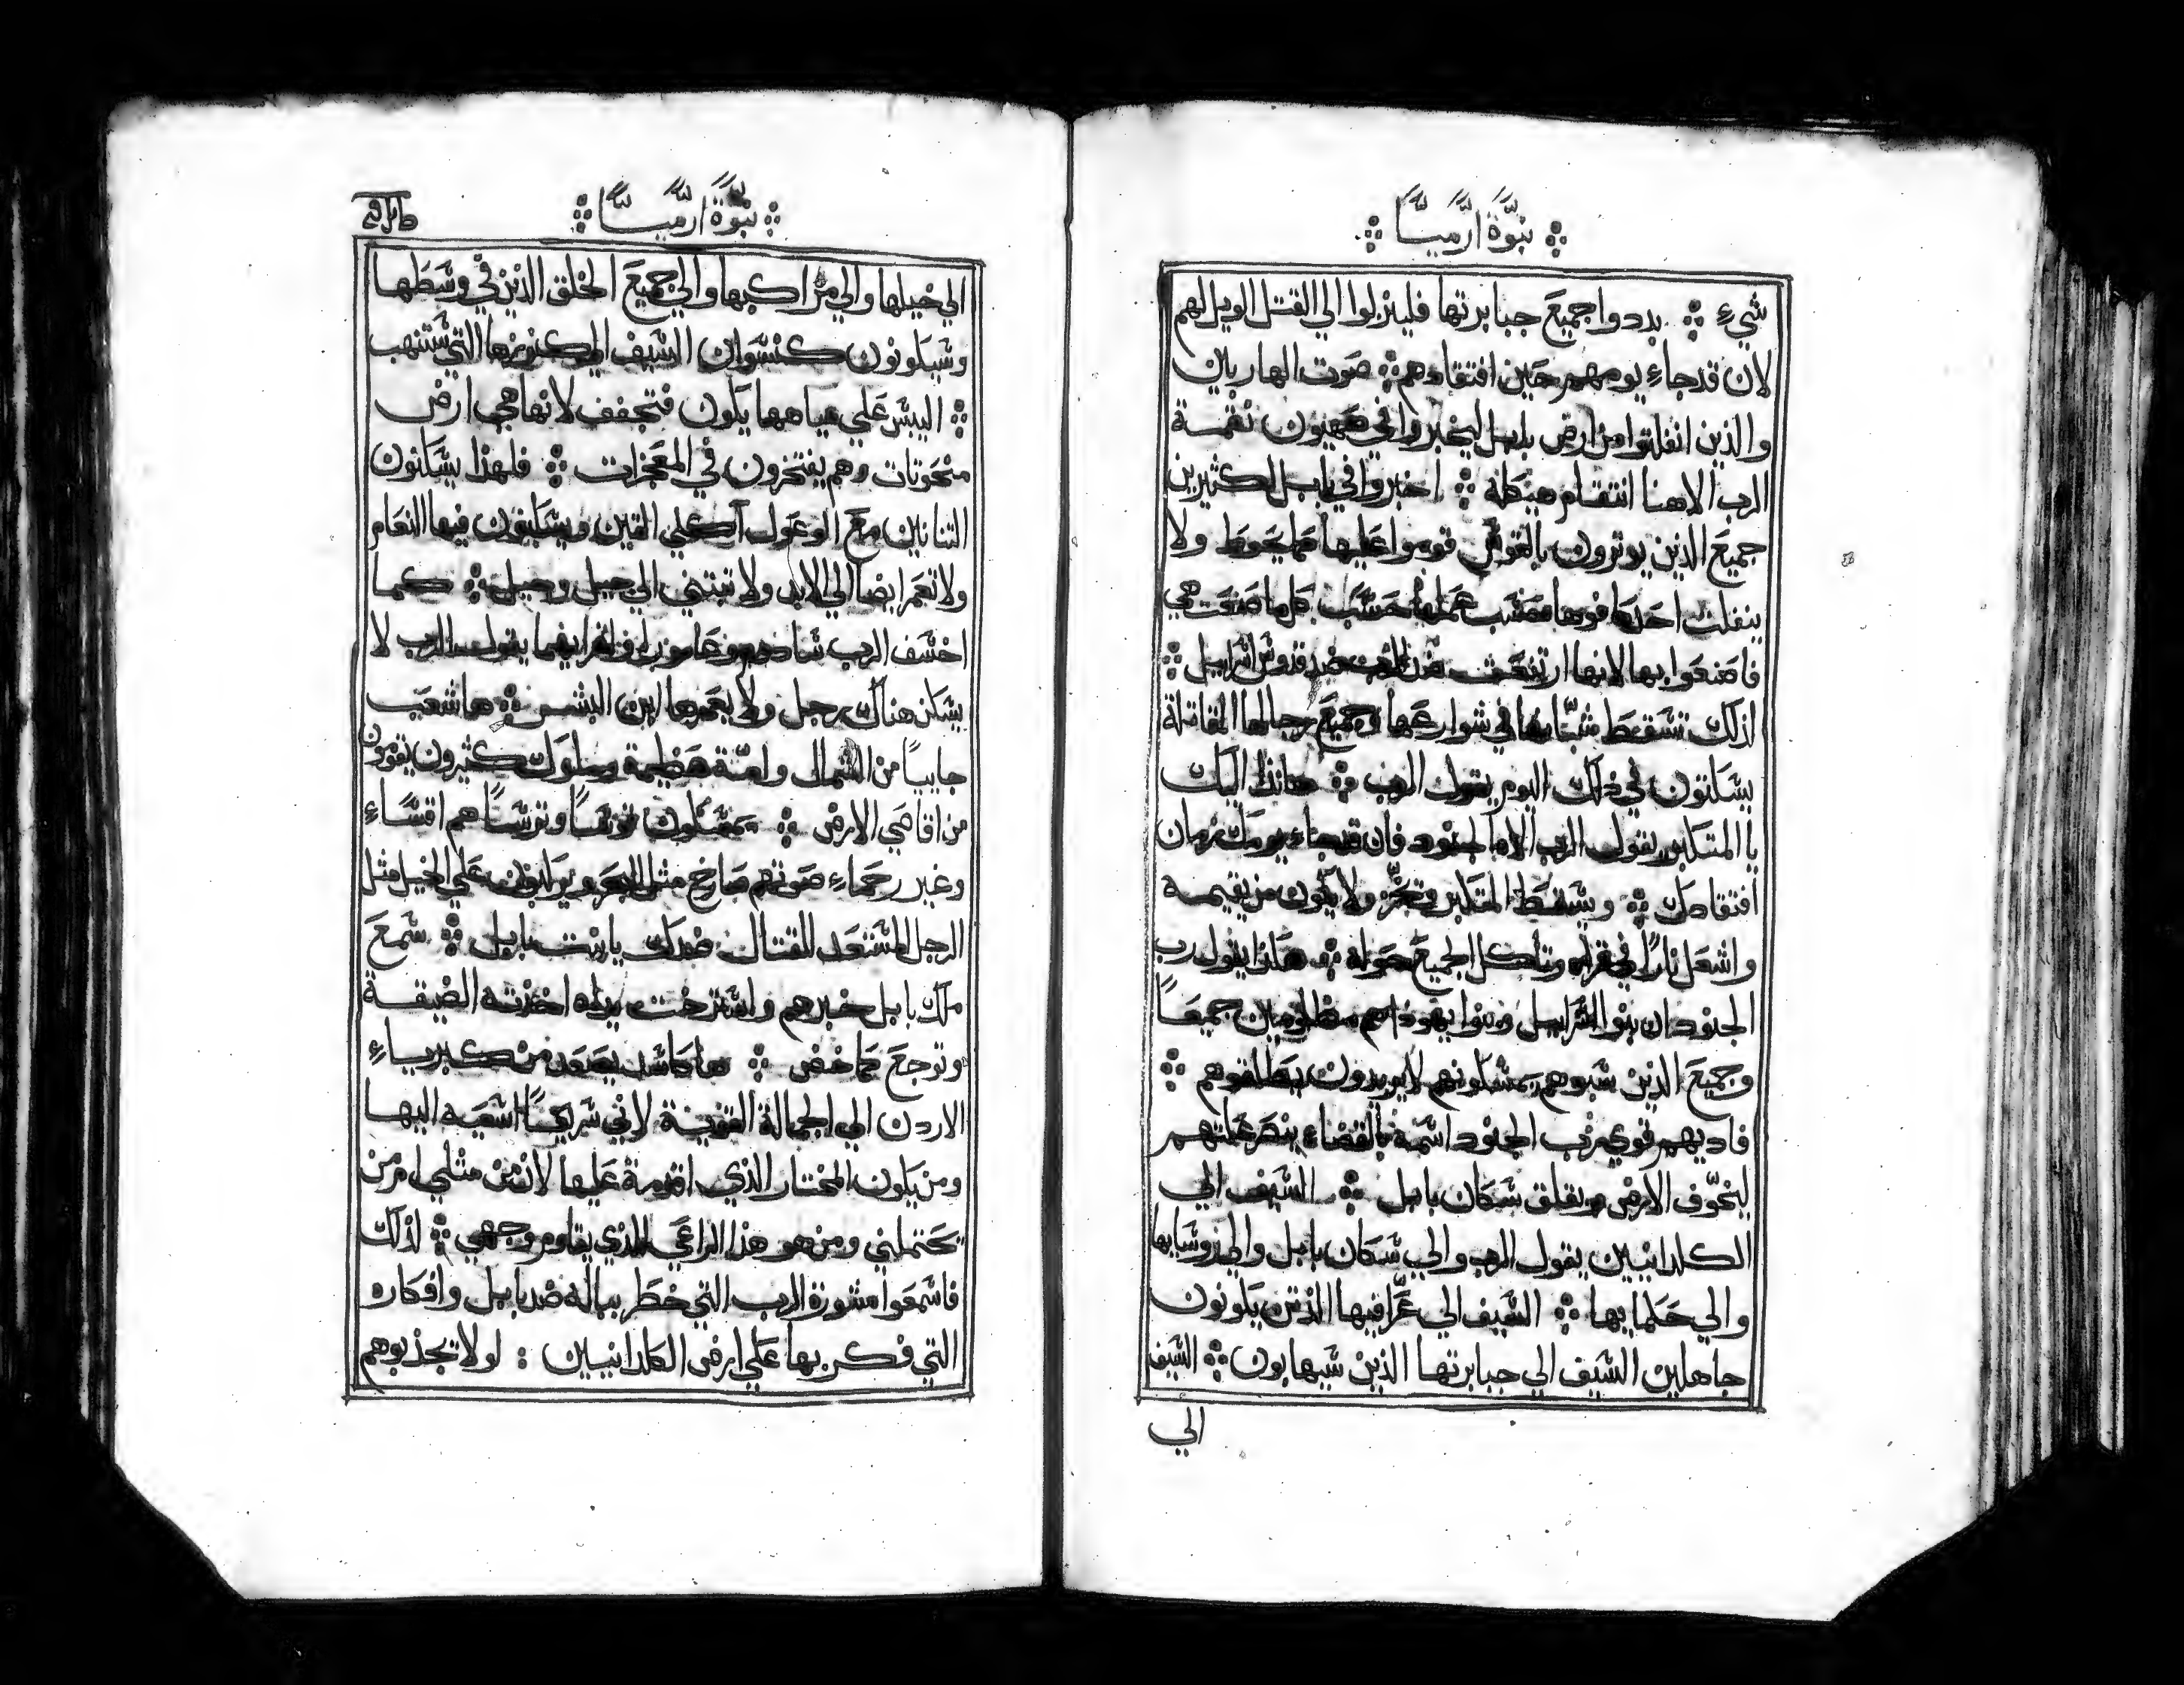 نبوة ارميا
شيءٍ ܀ بددوا جميع جبابرتها فلينزلوا الي القتل الويل لهم
لان قد جاءِ يومهم حين افتقادهم ܀ صوت الهاربين
والذين انفلتوا من ارض بابل ليخبروا في صهيون نقمة
الرب الاهنا انتقام هيكله ܀ اخبروا في بابل الكثيرين
جميع الذين يوترون بالقوس قوموا عليها محوط ولا
ينفلت احد كافوها حسب عملها حسب كل ما صنعت هي
فاصنعوا بها لانها ارتفعت ضد الرب ضد قدوس اسراييل ܀
لذلك تسقط شبابها في شوارعها وجميع رجالها المقاتلة
يسكتون في ذلك اليوم يقول الرب ܀ هانذا اليك
يا المتكبر يقول الرب الاه الجنود فان قد جاء يومك زمان
افتقادك ܀ ويسقط المتكبر ويخر ولا يكون من يقيمه
واشعل نارًا في قراه وتاكل الجميع حوله ܀ هكذا يقول رب
الجنود ان بنوا اسراييل وبنوا يهوذا هم مظلومين جميعًا
وجميع الذين سبوهم يمسكونهم لا يريدون يطلقوهم ܀
فاديهم قوي رب الجنود اسمه بالقضاء ينصر علتهم
ليخوّف الارض ويقلق سكان بابل ܀ السيف الي
الكلدانيين يقول الرب والي سكان بابل والي روسايها
والي حكمايها ܀ السيف الي عرّافيها الذين يكونون
جاهلين السيف الي جبابرتها الذين سيهابون ܀ السيف
الي
نبوة ارميا
الي خيلها والي مراكبها والي جميع الخلق الذين في وسطها
وسيكونون كنسوان السيف الي كنوزها التي ستنهب
܀ اليبس علي مياهها يكون فتجفف لانها هي ارض
منحوتات وهم يفتخرون في المعجزات ܀ فلهذا يسكنون
التنانين مع الوعول آكلي التين ويسكنون فيها النعام
ولا تعمر ايضا الي الابد ولا تبتني الي جيل وجيل ܀ كما
اخسف الرب سادوم وعامورا وقرايهما يقول الرب لا
يسكن هناك رجل ولا يعمرها ابن البشر ܀ ها شعب
جاييًا من الشمال وامة عظيمة وملوك كثيرون يقومون
من اقاصي الارض ܀ يمسكون قوسًا وترسًا هم اقساءِ
وغير رحماءِ صوتهم صارخ مثل البحر ويركبون علي الخيل مثل
الرجل المستعد للقتال ضدك يا بنت بابل ܀ سمع
ملك بابل خبرهم واسترخت يداه اخذته الضيقة
وتوجع كماخض ܀ ها كاسد يصعد من كبرياءِ
الاردن الي الجمالة القوية لاني سريعًا اسعيه اليها
ومن يكون المختار الذي اقومه عليها لانه من مثلي او من
يحتملني ومن هو هذا الراعي الذي يقاوم وجهي ܀ لذلك
فاسمعوا مشورة الرب التي خطر بباله ضد بابل وافكاره
التي فكر بها علي ارض الكلدانيين : لولا تجذبوهم